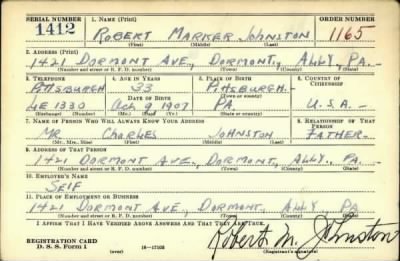 SERIAL NUMBER 1. NAME (Print) ORDER NUMBER
1412 ROBERT MARKER JOHNSTON 1165
(First) (Middle) (Last)
2. ADDRESS (Print)
1421 DORMONT AVE., DORMONT, ALLY., PA.
(Number and street or R. F. D. number) (Town) (County) (State)
3. TELEPHONE 4. AGE IN YEARS 5. PLACE OF BIRTH 6. COUNTRY OF CITIZENSHIP
PITTSBURGH 33 PITTSBURGH
DATE OF BIRTH (Town or county)
LE 1330 OCT 9 1907 PA. U.S.A.
(Exchange) (Number) (Mo.) (Day) (Yr.) (State or country)
7. NAME OF PERSON WHO WILL ALWAYS KNOW YOUR ADDRESS 8. RELATIONSHIP OF THAT PERSON
MR. CHARLES JOHNSTON FATHER
(Mr., Mrs., Miss) (First) (Middle) (Last)
9. ADDRESS OF THAT PERSON
1421 DORMONT AVE., DORMONT, ALLY., PA.
(Number and street or R. F. D. number) (Town) (County) (State)
10. EMPLOYER'S NAME
SELF
11. PLACE OF EMPLOYMENT OR BUSINESS
1421 DORMONT AVE., DORMONT, ALLY., PA
(Number and street or R. F. D. number) (Town) (County) (State)
I AFFIRM THAT I HAVE VERIFIED ABOVE ANSWERS AND THAT THEY ARE TRUE.
REGISTRATION CARD
D. S. S. Form 1 (over) 16-17105
Robert M. Johnston